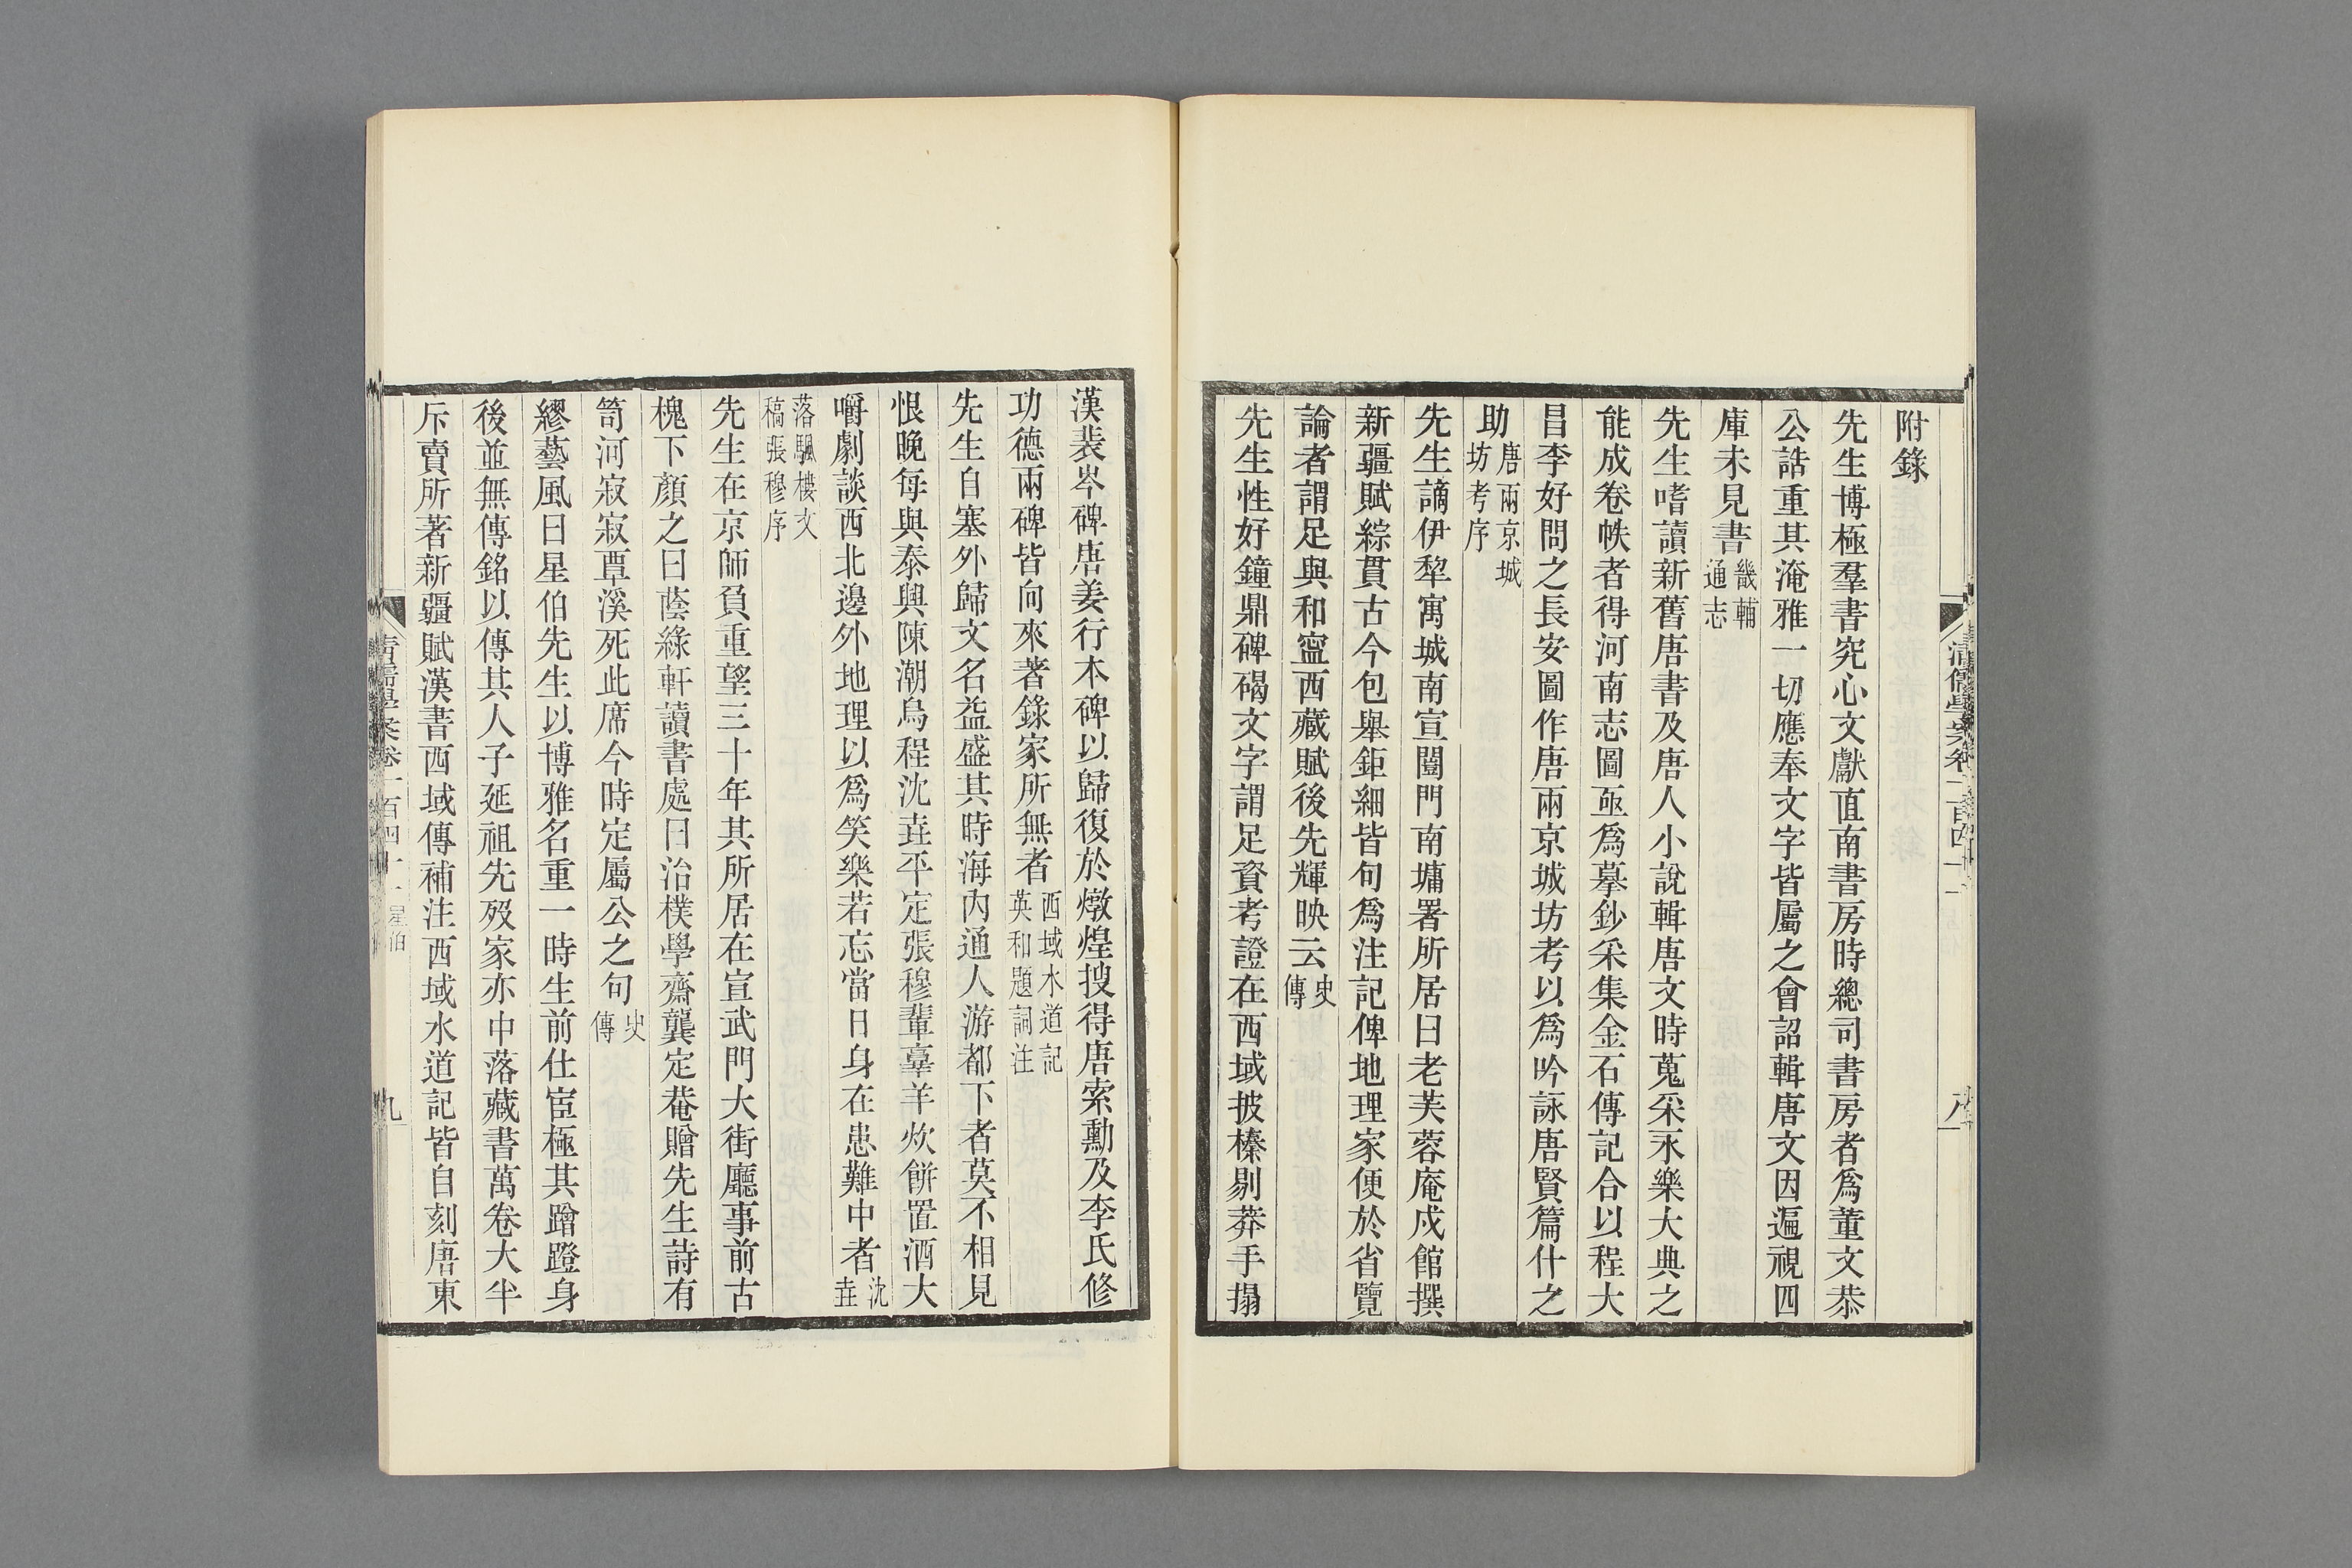 附錄
先生博極羣書究心文獻直南書房時總司書房者爲董文恭
公誥重其淹雅一切應奉文字皆屬之會詔輯唐文因遍視四
庫未見書畿輔通志
先生嗜讀新舊唐書及唐人小說輯唐文時蒐采永樂大典之
能成卷帙者得河南志圖亟爲摹鈔采集金石傳記合以程大
昌李好問之長安圖作唐兩京城坊考以爲吟詠唐賢篇什之
助唐兩京城坊考序
先生謫伊犂寓城南宣闓門南墉署所居曰老芙蓉庵戍館撰
新疆賦綜貫古今包舉鉅細皆句爲注記俾地理家便於省覽
論者謂足與和寧西藏賦後先輝映云史傳
先生性好鐘鼎碑碣文字謂足資考證在西域披榛剔莽手搨
漢裴岑碑唐姜行本碑以歸復於燉煌搜得唐索勳及李氏修
功德兩碑皆向來著錄家所無者西域水道記英和題詞注
先生自塞外歸文名益盛其時海內通人游都下者莫不相見
恨晚每與泰興陳潮烏程沈垚平定張穆輩辜羊炊餅置酒大
嚼劇談西北邊外地理以爲笑樂若忘當日身在患難中者沈垚
落颿樓文稿張穆序
先生在京師負重望三十年其所居在宣武門大街廳事前古
槐下顏之曰蔭綠軒讀書處曰治樸學齋龔定菴贈先生詩有
笥河寂寂覃溪死此席今時定屬公之句史傳
繆藝風曰星伯先生以博雅名重一時生前仕宦極其蹭蹬身
後並無傳銘以傳其人子延祖先歿家亦中落藏書萬卷大半
斥賣所著新疆賦漢書西域傳補注西域水道記皆自刻唐東
清儒學案卷一百四十一
八
清儒學案卷一百四十一 星伯
九